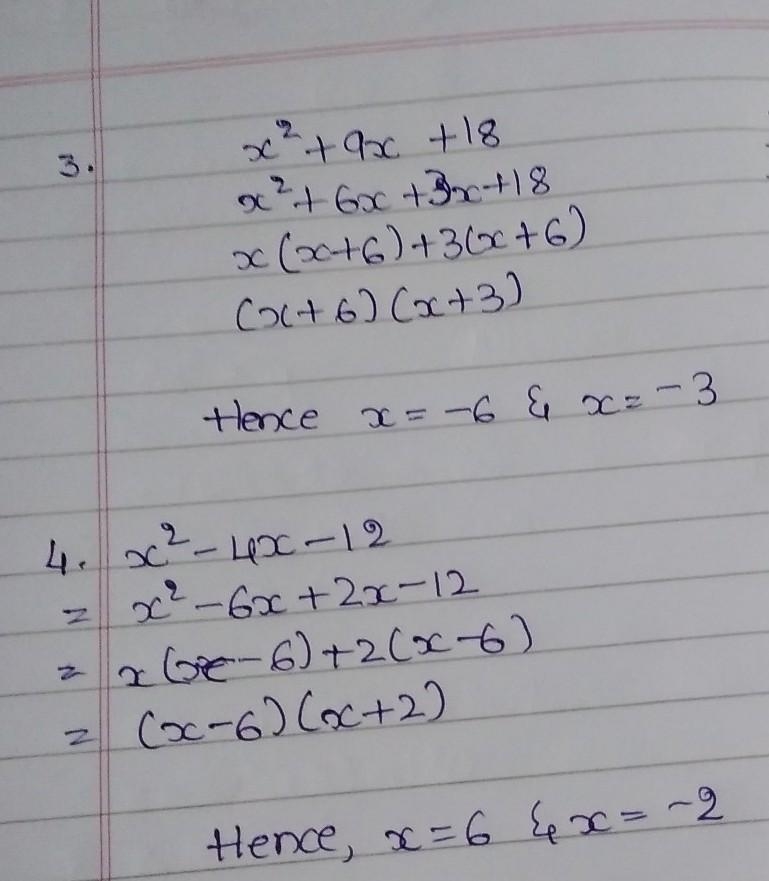 3. x² + 9x + 18
x² + 6x + 3x + 18
x(x+6) + 3(x+6)
(x+6)(x+3)
Hence x = -6 & x = -3
4. x² - 4x - 12
= x² - 6x + 2x - 12
= x(x-6) + 2(x-6)
= (x-6)(x+2)
Hence, x = 6 & x = -2